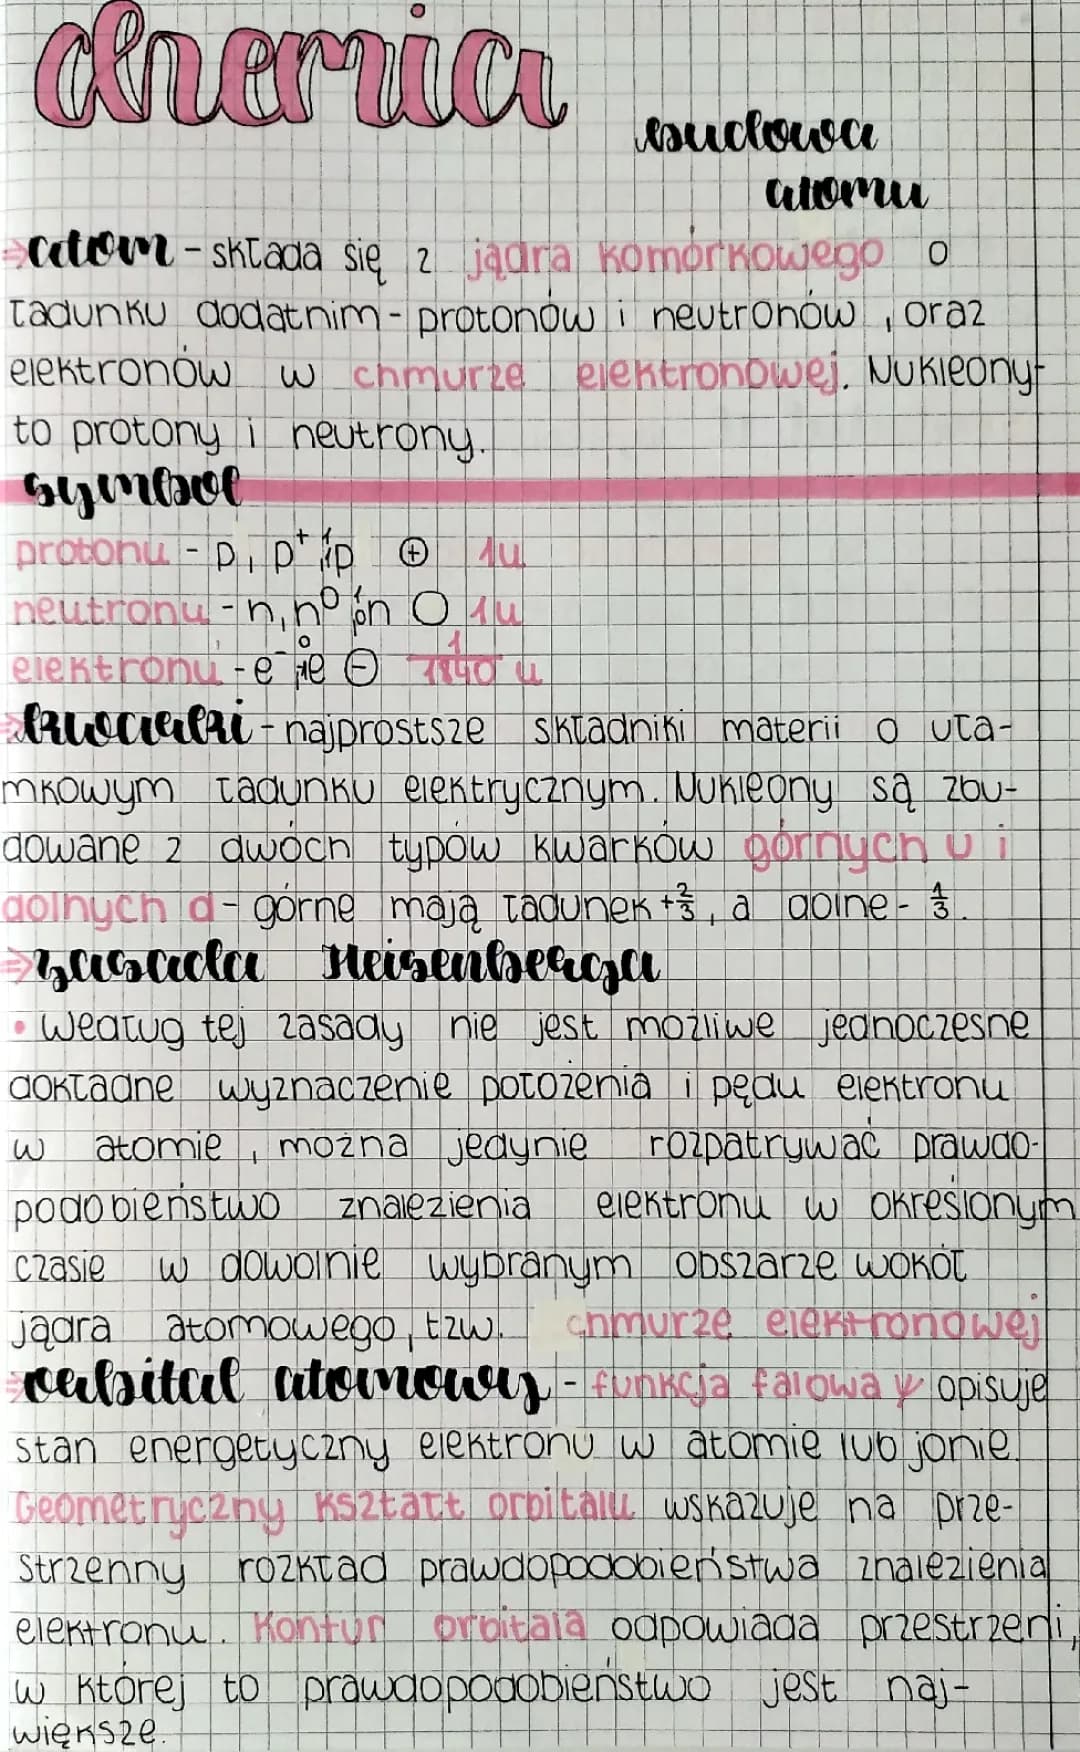 chemia
budowa
atomu
⇒atom - składa się z jądra komórkowego o
ładunku dodatnim - protonów i neutronów, oraz
elektronów w chmurze elektronowej. Nukleony-
to protony i neutrony.
symbol
protonu - p, p⁺ ¹₁p ⊕ 1u
neutronu - n, n⁰ ¹₀n ○ 1u
elektronu - e⁻ ⁰₋₁e ⊖ 1/1840 u
⇒kwarki - najprostsze składniki materii o uła-
mkowym ładunku elektrycznym. Nukleony są zbu-
dowane z dwóch typów kwarków górnych u i
dolnych d - górne mają ładunek +2/3, a dolne - 1/3.
⇒zasada Heisenberga
• według tej zasady nie jest możliwe jednoczesne
dokładne wyznaczenie położenia i pędu elektronu
w atomie, można jedynie rozpatrywać prawdo-
podobieństwo znalezienia elektronu w określonym
czasie w dowolnie wybranym obszarze wokół
jądra atomowego, tzw. chmurze elektronowej
⇒orbital atomowy - funkcja falowa ψ opisuje
stan energetyczny elektronu w atomie lub jonie.
Geometryczny kształt orbitalu wskazuje na prze-
strzenny rozkład prawdopodobieństwa znalezienia
elektronu. Kontur orbitala odpowiada przestrzeni,
w której to prawdopodobieństwo jest naj-
większe.